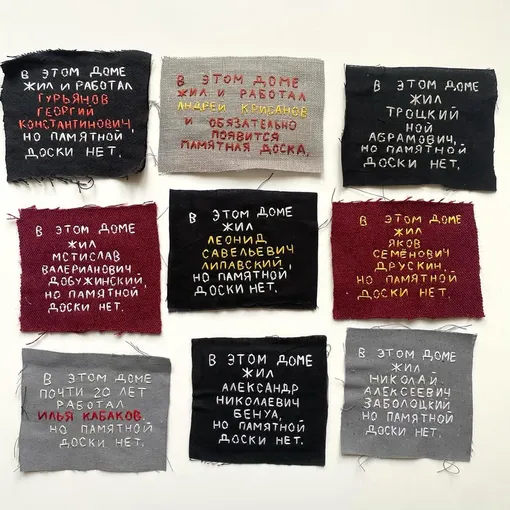 В ЭТОМ ДОМЕ
ЖИЛ И РАБОТАЛ
ГУРЬЯНОВ
ГЕОРГИЙ
КОНСТАНТИНОВИЧ,
НО ПАМЯТНОЙ
ДОСКИ НЕТ.
В ЭТОМ ДОМЕ
ЖИЛ И РАБОТАЛ
АНДРЕЙ КРИСАНОВ
И ОБЯЗАТЕЛЬНО
ПОЯВИТСЯ
ПАМЯТНАЯ ДОСКА.
В ЭТОМ ДОМЕ
ЖИЛ
ТРОЦКИЙ
НОЙ
АБРАМОВИЧ,
НО ПАМЯТНОЙ
ДОСКИ НЕТ.
В ЭТОМ ДОМЕ
ЖИЛ
МСТИСЛАВ
ВАЛЕРИАНОВИЧ
ДОБУЖИНСКИЙ,
НО ПАМЯТНОЙ
ДОСКИ НЕТ.
В ЭТОМ ДОМЕ
ЖИЛ
ЛЕОНИД
САВЕЛЬЕВИЧ
ЛИПАВСКИЙ,
НО ПАМЯТНОЙ
ДОСКИ НЕТ.
В ЭТОМ ДОМЕ
ЖИЛ
ЯКОВ
СЕМЁНОВИЧ
ДРУСКИН,
НО ПАМЯТНОЙ
ДОСКИ НЕТ.
В ЭТОМ ДОМЕ
ПОЧТИ 20 ЛЕТ
РАБОТАЛ
ИЛЬЯ КАБАКОВ,
НО ПАМЯТНОЙ
ДОСКИ НЕТ.
В ЭТОМ ДОМЕ
ЖИЛ
АЛЕКСАНДР
НИКОЛАЕВИЧ
БЕНУА,
НО ПАМЯТНОЙ
ДОСКИ НЕТ.
В ЭТОМ ДОМЕ
ЖИЛ
НИКОЛАЙ
АЛЕКСЕЕВИЧ
ЗАБОЛОЦКИЙ,
НО ПАМЯТНОЙ
ДОСКИ НЕТ.